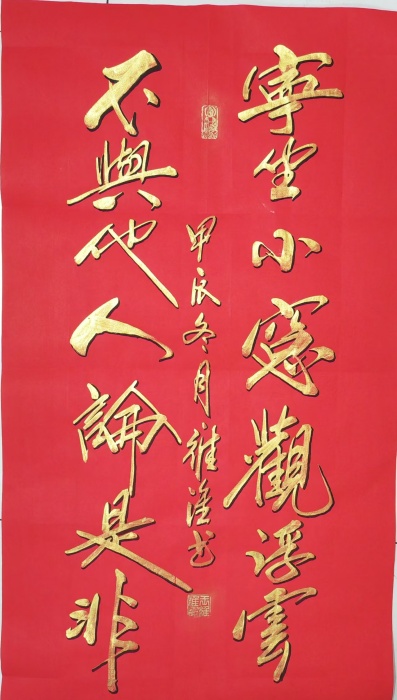 寧坐小窓觀浮雲
不與他人論是非
甲辰冬月維淮书